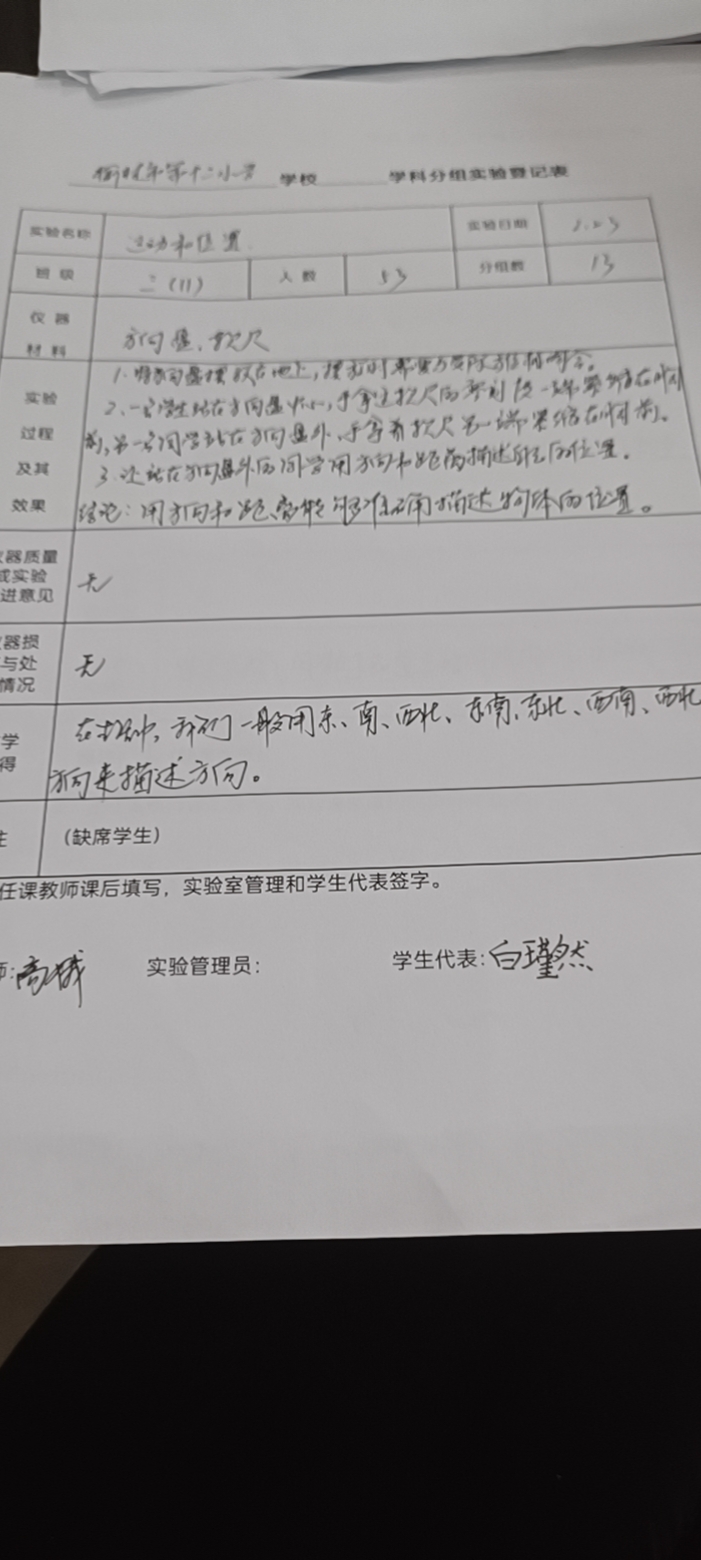 第十二小学 学校 学科分组实验登记表
实验名称 运动和位置 实验日期
班级 三(11) 人数 53 分组数 13
仪器
材料 方向盘、软尺
实验
过程
及其
效果
1. 将方向盘摆放在地上,摆放时需要与实际方位相吻合。
2. 一名学生站在方向盘中心,手拿过软尺的零刻度一端紧缩在胸
前,另一名同学站在方向盘外,手拿着软尺另一端紧缩在胸前。
3. 让站在方向盘外的同学用方向和距离描述自己的位置。
结论:用方向和距离能够准确描述物体的位置。
器质量
或实验
进意见 无
器损
与处
情况 无
学
得
在 中,我们一般用东、南、西北、东南、东北、西南、西北
方向来描述方向。
注 (缺席学生)
任课教师课后填写,实验室管理和学生代表签字。
师:高城 实验管理员: 学生代表:白瑾然